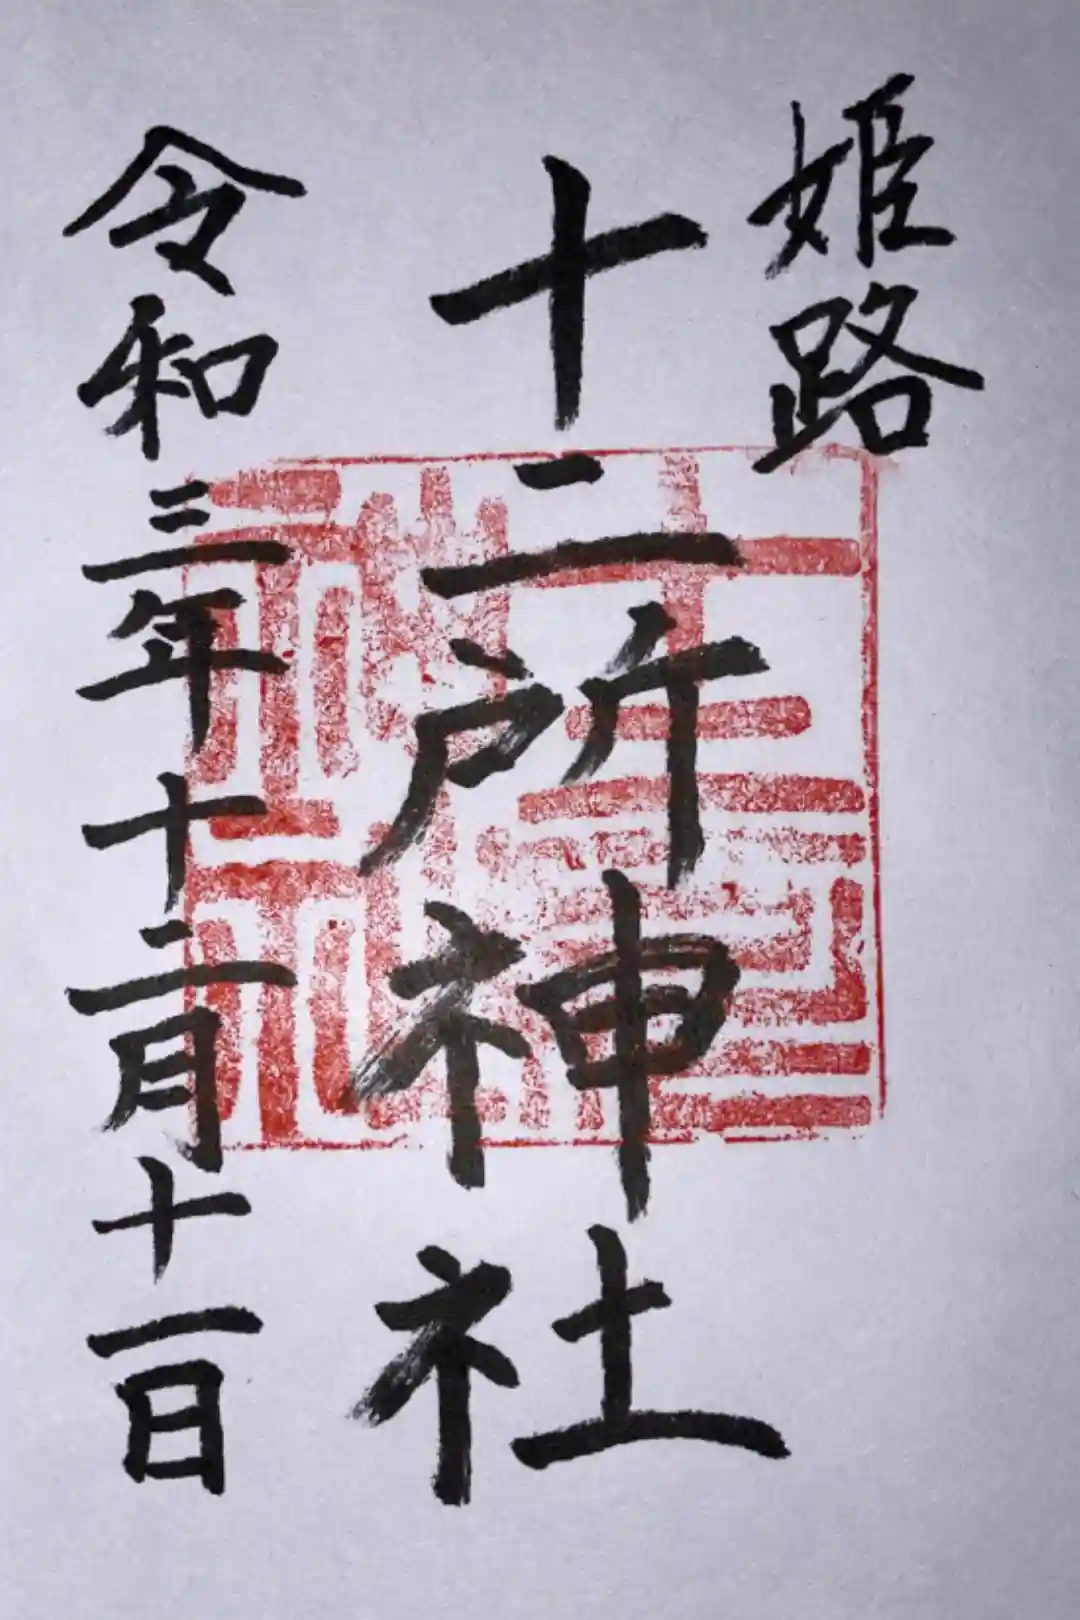 姫路
十二所神社
令和三年十二月十一日